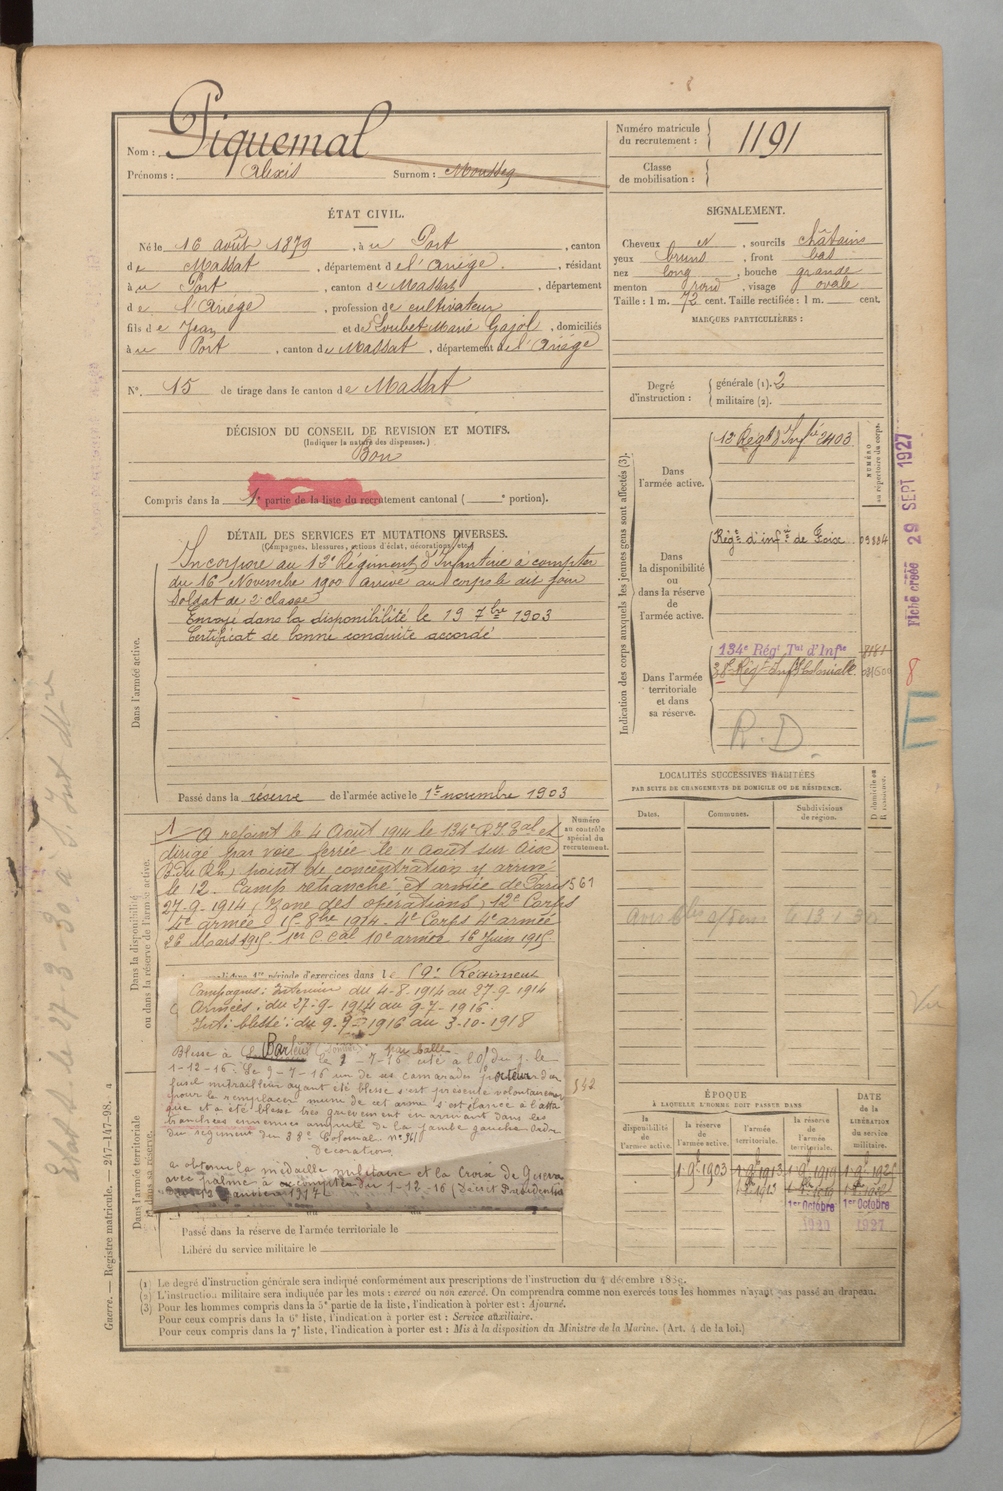 Nom : Piquemal
Prénoms : Alexis Surnom : Mousseg
Numéro matricule
du recrutement : 1191
Classe
de mobilisation :
ÉTAT CIVIL.
Né le 16 août 1879, à u Port, canton
de Massat, département de l'Ariège, résidant
à u Port, canton de Massat, département
de l'Ariège, profession de cultivateur
fils de Jean et de Loubet Marie Gajol, domiciliés
à u Port, canton de Massat, département de l'Ariège
N° 15 de tirage dans le canton de Massat
SIGNALEMENT.
Cheveux et, sourcils châtains
yeux bruns, front bas
nez long, bouche grande
menton rond, visage ovale
Taille : 1 m. 72 cent. Taille rectifiée : 1 m. cent.
MARQUES PARTICULIÈRES :
Degré
d'instruction :
générale (1). 2
militaire (2).
DÉCISION DU CONSEIL DE REVISION ET MOTIFS.
(Indiquer la nature des dispenses.)
Bon
Compris dans la 1e partie de la liste du recrutement cantonal ( e portion).
DÉTAIL DES SERVICES ET MUTATIONS DIVERSES.
(Campagnes, blessures, actions d'éclat, décorations, etc.)
Dans l'armée active.
Incorporé au 12e Régiment d'Infanterie à compter
du 16 Novembre 1900 arrivé au corps le dit jour
Soldat de 2e classe
Envoyé dans la disponibilité le 19 7bre 1903
Certificat de bonne conduite accordé
Passé dans la réserve de l'armée active le 1er novembre 1903
Indication des corps auxquels les jeunes gens sont affectés (3).
NUMÉRO
au répertoire du corps.
Dans
l'armée active.
12 Régt d'Infie 2403
Dans
la disponibilité
ou
dans la réserve
de
l'armée active.
Régt d'infie de Foix 09884
Dans l'armée
territoriale
et dans
sa réserve.
134e Régt Tal d'Infie 8181
38e Régt Inf Coloniale
R.D.
Fiche créée 29 SEPT 1927
8
E
LOCALITÉS SUCCESSIVES HABITÉES
PAR SUITE DE CHANGEMENTS DE DOMICILE OU DE RÉSIDENCE.
Dates.
Communes.
Subdivisions
de région.
D domicile ou
R résidence.
Dans la disponibilité
ou dans la réserve de l'armée active.
Numéro
au contrôle
spécial du
recrutement.
A rejoint le 4 Août 1914 le 134e R.I.Tal et
dirigé par voie ferrée le 11 Août sur Aix
(B. du Rh.) point de concentration y arrivé
le 12. Camp retranché et armée de Paris 561
27-9-1914 (Zone des opérations) 12e Corps
4e armée 15-8bre 1914. 4e Corps 4e armée
26 Mars 1915. 1er C. Cal 10e armée 16 Juin 1915
1re période d'exercices dans le 59e Régiment
Campagnes : Intérieur du 4-8-1914 au 27-9-1914
Armées : du 27-9-1914 au 9-7-1916.
Int. blessé : du 9-7-1916 au 3-10-1918
Blessé à Barleux (Somme) par balle
le 9-7-16 cité à l'O/ du j. le
1-12-16 : Le 9-7-16 un de ses camarades porteur d'un
fusil mitrailleur ayant été blessé s'est présenté volontairement
pour le remplacer muni de cet arme s'est élancé à l'atta
que et a été blessé très grièvement en arrivant dans les
tranchées ennemies amputé de la jambe gauche Ordre
du régiment du 38e Colonial
Décorations
a obtenu la médaille militaire et la Croix de Guerre
avec palme à compter du 1-12-16 (Décret Présidentiel
1917).
542
Dans l'armée territoriale
et dans sa réserve.
Passé dans la réserve de l'armée territoriale le
Libéré du service militaire le
ÉPOQUE
À LAQUELLE L'HOMME DOIT PASSER DANS
DATE
de la
LIBÉRATION
du service
militaire.
la
disponibilité
de
l'armée active.
la réserve
de
l'armée active.
l'armée
territoriale.
la
réserve de
l'armée
territoriale.
1-9bre 1903
1-9bre 1913
1-9bre 1919
1er Octobre
1er Octobre
1927
(1) Le degré d'instruction générale sera indiqué conformément aux prescriptions de l'instruction du 4 décembre 1889.
(2) L'instruction militaire sera indiquée par les mots : exercé ou non exercé. On comprendra comme non exercés tous les hommes n'ayant pas passé au drapeau.
(3) Pour les hommes compris dans la 5e partie de la liste, l'indication à porter est : Ajourné.
Pour ceux compris dans la 6e liste, l'indication à porter est : Service auxiliaire.
Pour ceux compris dans la 7e liste, l'indication à porter est : Mis à la disposition du Ministre de la Marine. (Art. 4 de la loi.)
Guerre. — Registre matricule. — 247-147-98.